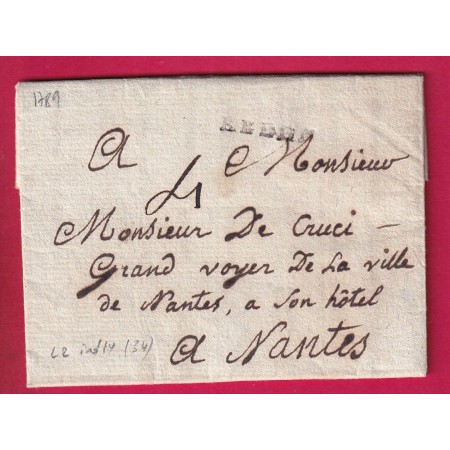 1789
REDON
A Monsieur
4
Monsieur De Cruci –
Grand voyer De La ville
de Nantes, a son hôtel
A Nantes
L2 ind 14 (34)